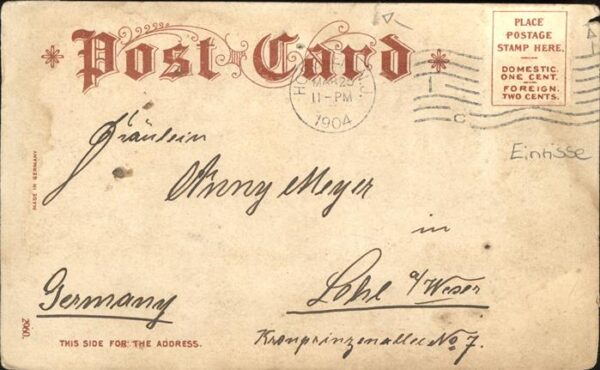 Post Card
PLACE
POSTAGE
STAMP HERE.
DOMESTIC.
ONE CENT.
FOREIGN.
TWO CENTS.
N.J.
MAR 25
11-PM
1904
C
Eintisse
MADE IN GERMANY
Fräulein
Anny Meyer
in
Lohe a/Weser
Germany
Kronprinzenallee No 7.
2960.
THIS SIDE FOR THE ADDRESS.